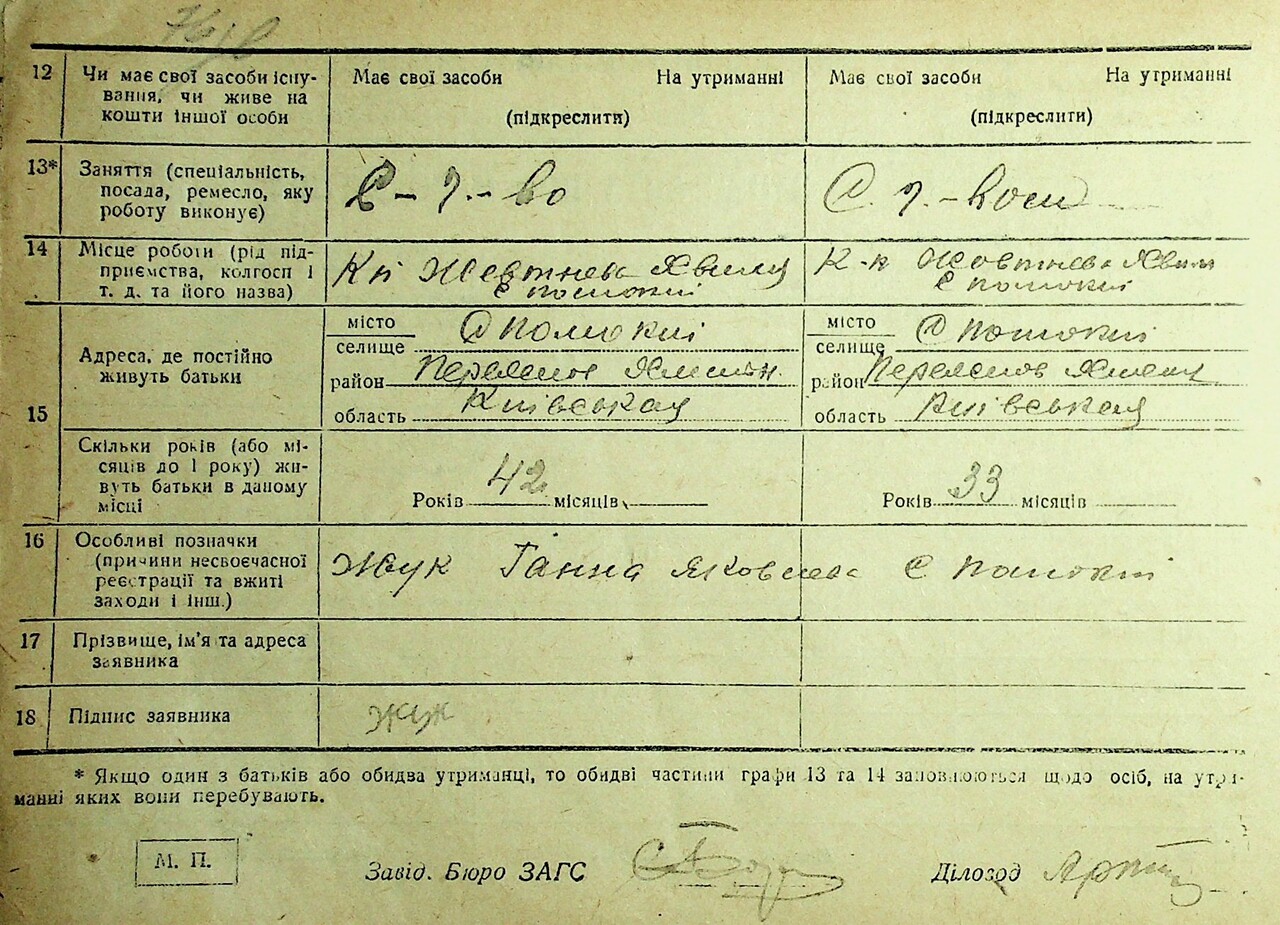 12 Чи має свої засоби існу- Має свої засоби На утриманні Має свої засоби На утриманні
вання, чи живе на
кошти іншої особи (підкреслити) (підкреслити)
13* Заняття (спеціальність,
посада, ремесло, яку
роботу виконує)
С-г.-во С. г.-во
14 Місце роботи (рід під-
приємства, колгосп і
т. д. та його назва)
Жовтнева Хвиля К-п Жовтнева Хвиля
с Потокі с Потокі
15 Адреса, де постійно
живуть батьки
місто селище с Потокі місто селище с Потокі
район район
область Київськая область Київськая
Скільки років (або мі-
сяців до 1 року) жи-
вуть батьки в даному
місці
Років 42 місяців Років 33 місяців
16 Особливі позначки
(причини несвоєчасної
реєстрації та вжиті
заходи і інш.)
Жук Ганна Яковлева с Потокі
17 Прізвище, ім'я та адреса
заявника
18 Підпис заявника Жук
* Якщо один з батьків або обидва утриманці, то обидві частини графи 13 та 14 заповнюються щодо осіб, на утри-
манні яких вони перебувають.
М. П. Завід. Бюро ЗАГС Діловод